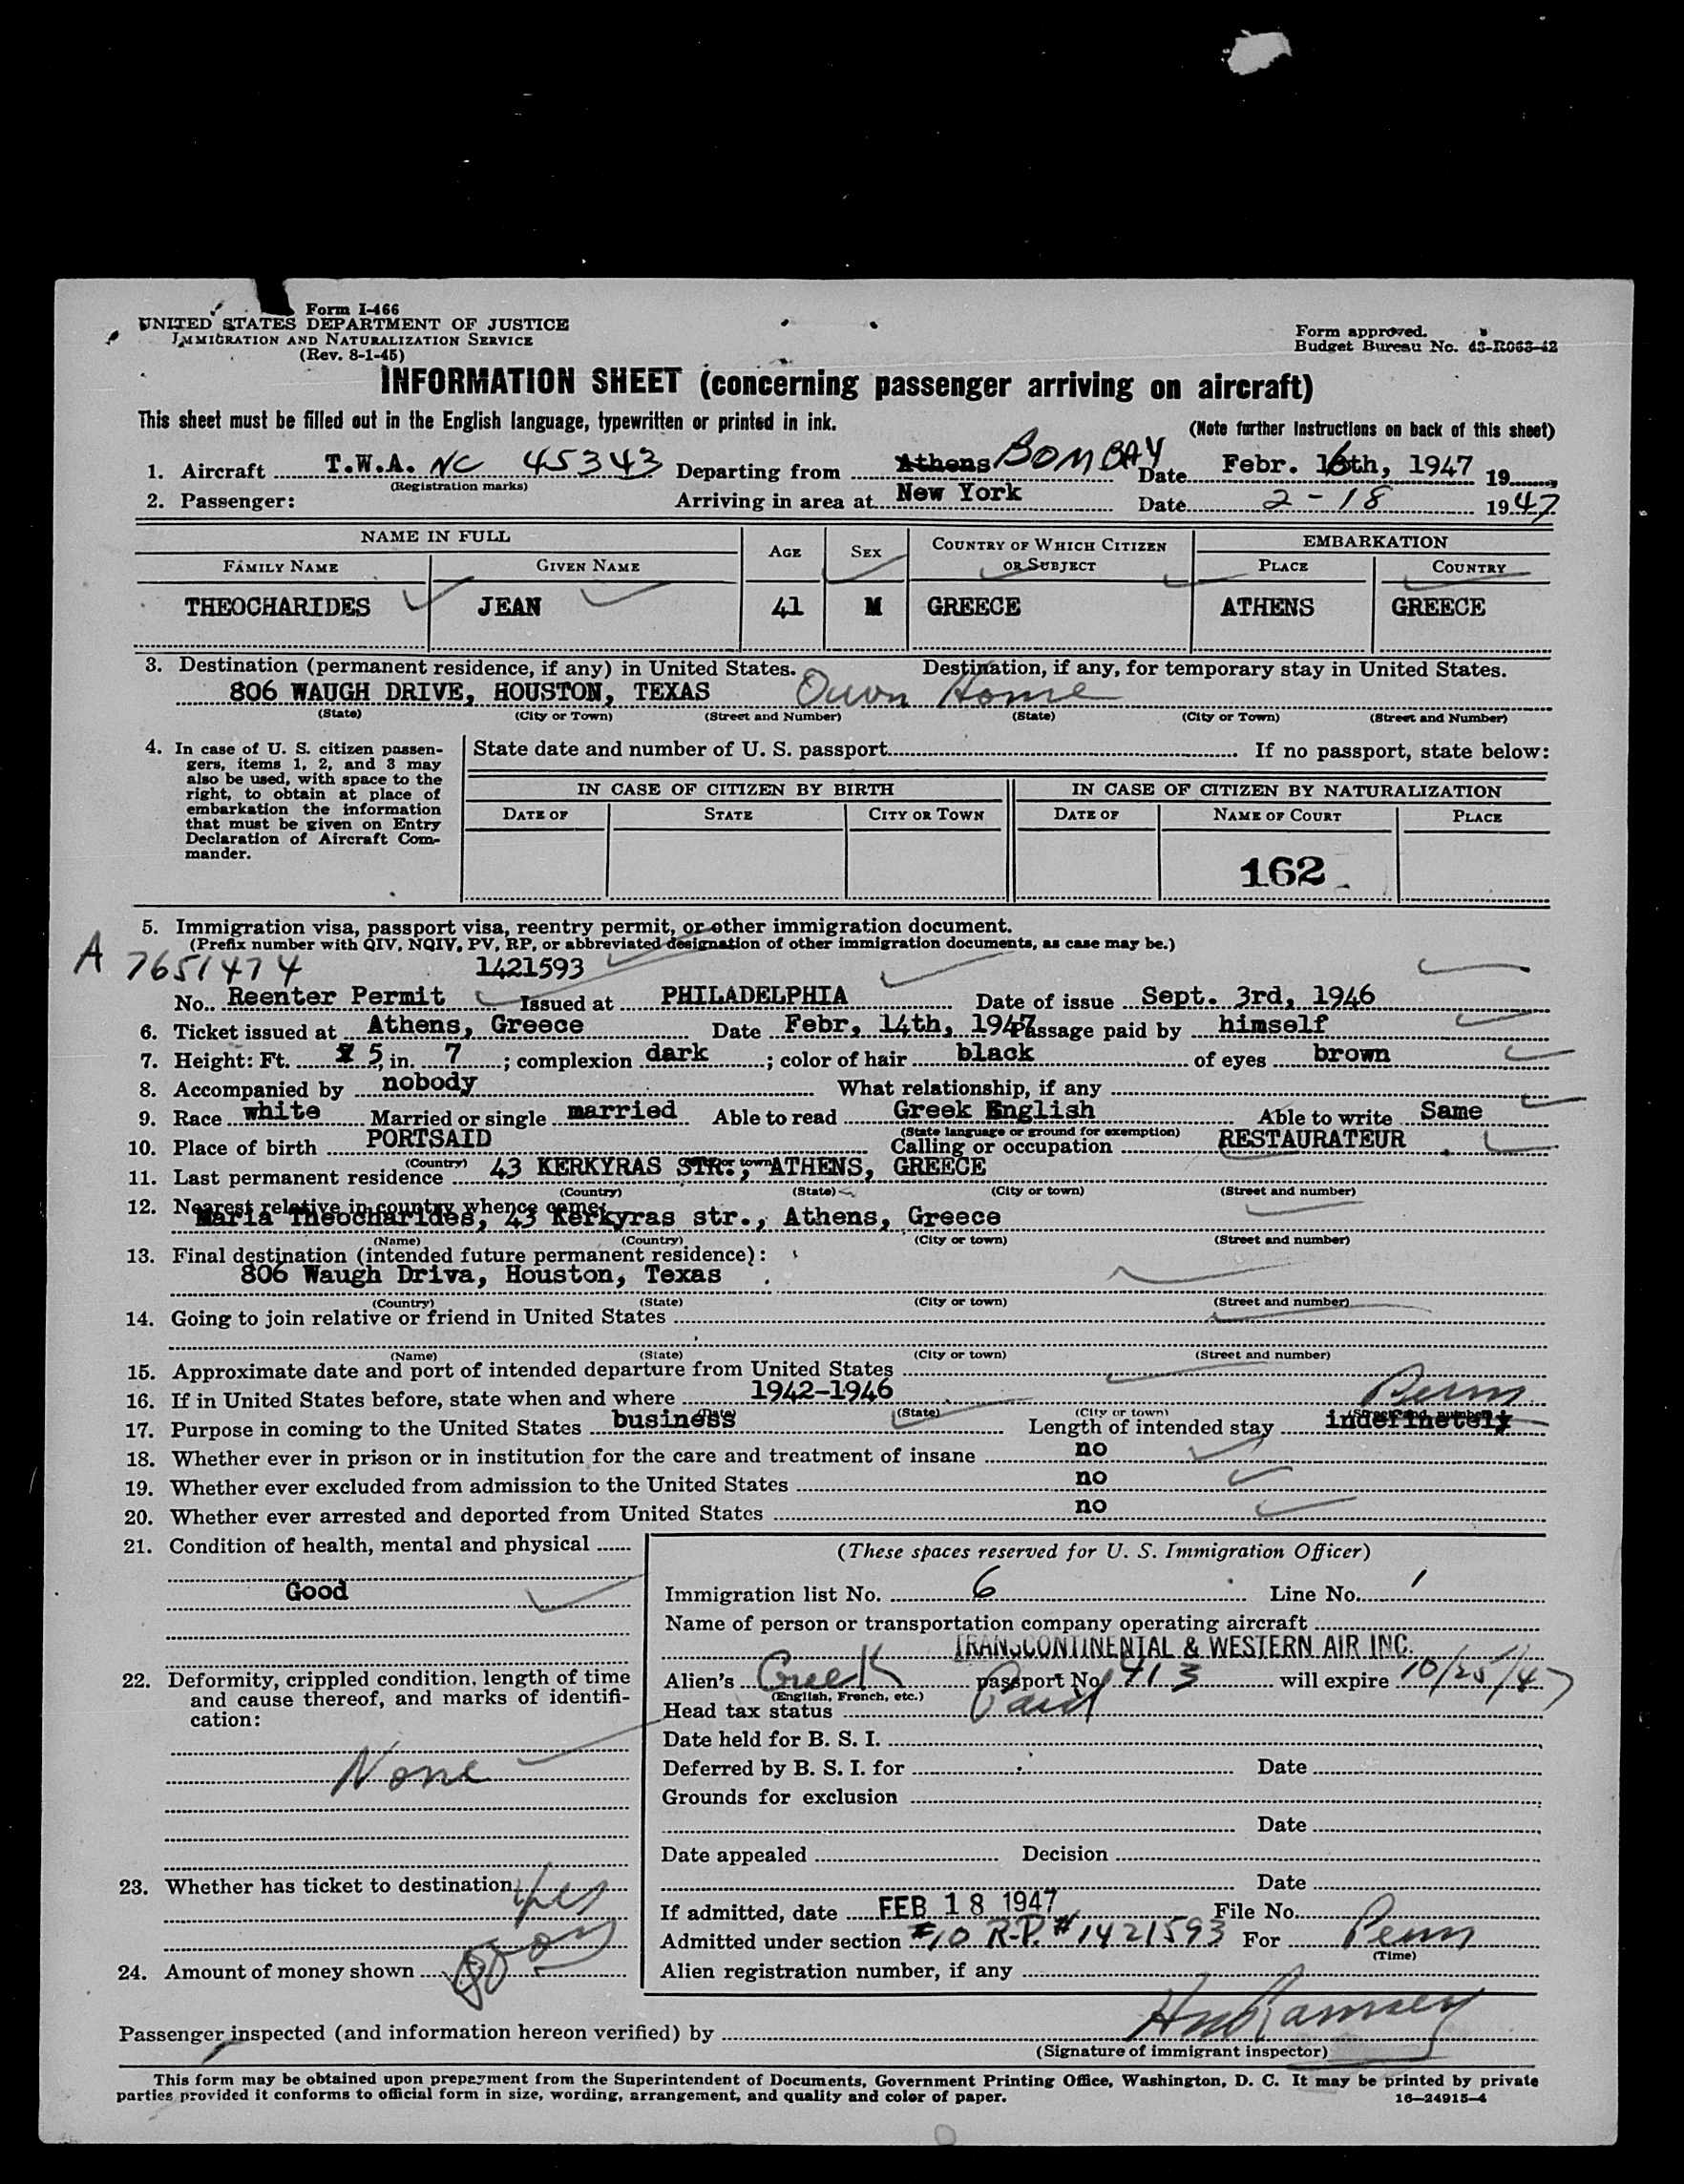 Form I-466
UNITED STATES DEPARTMENT OF JUSTICE
IMMIGRATION AND NATURALIZATION SERVICE
(Rev. 8-1-45)
Form approved.
Budget Bureau No. 43-R063-42
INFORMATION SHEET (concerning passenger arriving on aircraft)
This sheet must be filled out in the English language, typewritten or printed in ink.
(Note further instructions on back of this sheet)
1. Aircraft T.W.A. NC 45343 Departing from Athens BOMBAY Date Febr. 16th, 1947 19
(Registration marks)
2. Passenger: Arriving in area at New York Date 2-18 1947
NAME IN FULL AGE SEX COUNTRY OF WHICH CITIZEN OR SUBJECT EMBARKATION
FAMILY NAME GIVEN NAME PLACE COUNTRY
THEOCHARIDES JEAN 41 M GREECE ATHENS GREECE
3. Destination (permanent residence, if any) in United States. Destination, if any, for temporary stay in United States.
806 WAUGH DRIVE, HOUSTON, TEXAS Own Home
(State) (City or Town) (Street and Number) (State) (City or Town) (Street and Number)
4. In case of U. S. citizen passen-
gers, items 1, 2, and 3 may
also be used, with space to the
right, to obtain at place of
embarkation the information
that must be given on Entry
Declaration of Aircraft Com-
mander.
State date and number of U. S. passport If no passport, state below:
IN CASE OF CITIZEN BY BIRTH IN CASE OF CITIZEN BY NATURALIZATION
DATE OF STATE CITY OR TOWN DATE OF NAME OF COURT PLACE
162
5. Immigration visa, passport visa, reentry permit, or other immigration document.
(Prefix number with QIV, NQIV, PV, RP, or abbreviated designation of other immigration documents, as case may be.)
A 7651474 1421593
No. Reenter Permit Issued at PHILADELPHIA Date of issue Sept. 3rd, 1946
6. Ticket issued at Athens, Greece Date Febr, 14th, 1947 Passage paid by himself
7. Height: Ft. 5, in. 7; complexion dark; color of hair black of eyes brown
8. Accompanied by nobody What relationship, if any
9. Race white Married or single married Able to read Greek English Able to write Same
(State language or ground for exemption)
10. Place of birth PORTSAID Calling or occupation RESTAURATEUR
(Country) or town
11. Last permanent residence 43 KERKYRAS STR., ATHENS, GREECE
(Country) (State) (City or town) (Street and number)
12. Nearest relative in country whence came:
Maria Theocharides, 43 Kerkyras str., Athens, Greece
(Name) (Country) (City or town) (Street and number)
13. Final destination (intended future permanent residence):
806 Waugh Driva, Houston, Texas
(Country) (State) (City or town) (Street and number)
14. Going to join relative or friend in United States
(Name) (State) (City or town) (Street and number)
15. Approximate date and port of intended departure from United States
16. If in United States before, state when and where 1942-1946 Perm.
(Date) (State) (City or town) (Street and number)
17. Purpose in coming to the United States business Length of intended stay indefinetely
18. Whether ever in prison or in institution for the care and treatment of insane no
19. Whether ever excluded from admission to the United States no
20. Whether ever arrested and deported from United States no
21. Condition of health, mental and physical
Good
22. Deformity, crippled condition, length of time
and cause thereof, and marks of identifi-
cation:
None
23. Whether has ticket to destination yes
24. Amount of money shown
(These spaces reserved for U. S. Immigration Officer)
Immigration list No. 6 Line No. 1
Name of person or transportation company operating aircraft
TRANSCONTINENTAL & WESTERN AIR INC.
Alien's Greek passport No. 913 will expire 10/25/47
(English, French, etc.)
Head tax status Paid
Date held for B. S. I.
Deferred by B. S. I. for Date
Grounds for exclusion
Date
Date appealed Decision
Date
If admitted, date FEB 18 1947 File No.
Admitted under section #10 R-P. #1421593 For Perm
(Time)
Alien registration number, if any
Passenger inspected (and information hereon verified) by
(Signature of immigrant inspector)
This form may be obtained upon prepayment from the Superintendent of Documents, Government Printing Office, Washington, D. C. It may be printed by private
parties provided it conforms to official form in size, wording, arrangement, and quality and color of paper. 16—24915-4